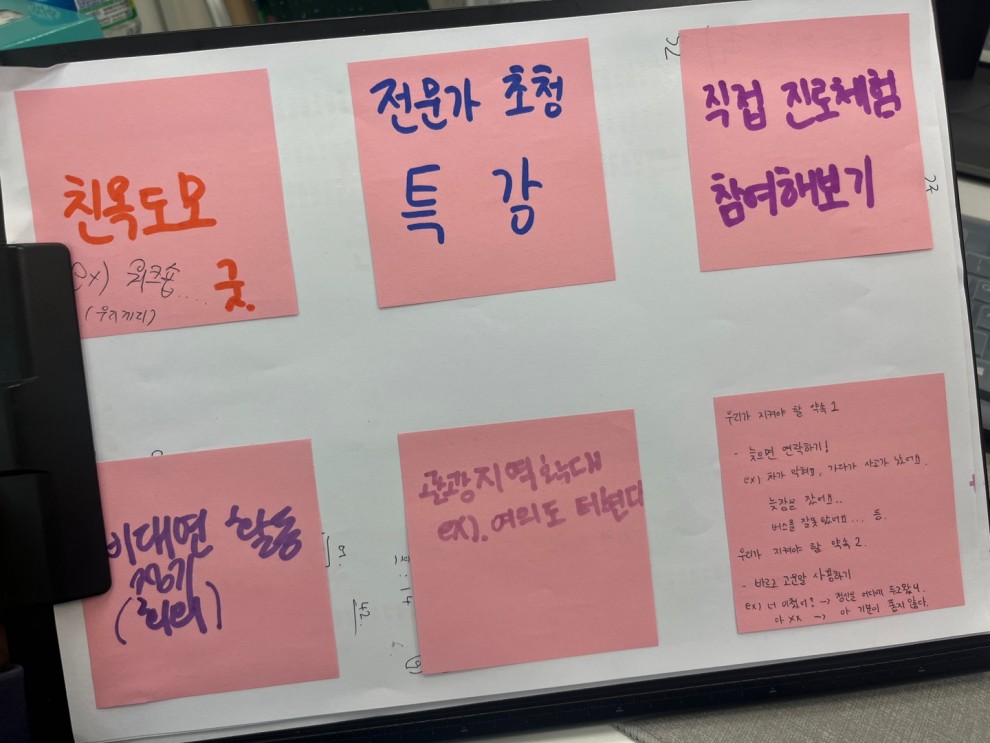 친목도모
ex) 워크숍....
굿.
(우리끼리)
전문가 초청
특 강
직접 진로체험
참여해보기
비대면 활동
정기
(회의)
관광지역확대
ex). 여의도 더현대
우리가 지켜야 할 약속 1
- 늦으면 연락하기!
ex) 차가 막혀요, 가다가 사고가 났어요.
늦잠을 잤어요..
버스를 잘못 탔어요... 등.
우리가 지켜야 할 약속 2.
- 바르고 고운말 사용하기
ex) 너 미쳤어? → 정신을 어디에 두고왔니.
아 xx → 아 기분이 좋지 않다.
32
42.